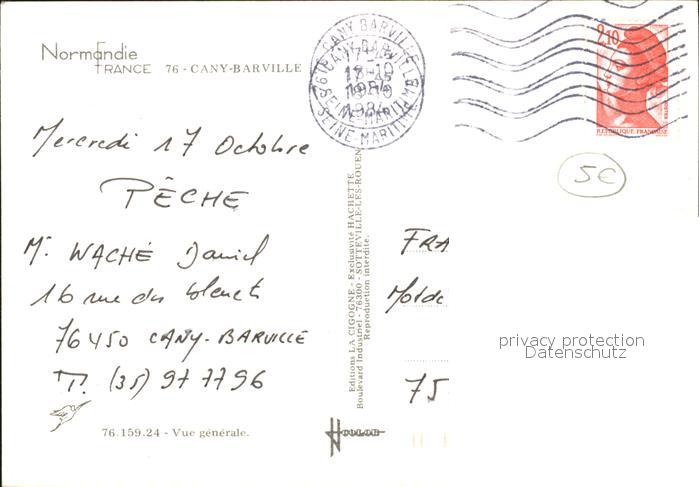 Normandie
FRANCE 76 - CANY-BARVILLE
CANY BARVILLE
1984
SEINE MARITIME
2,10
REPUBLIQUE FRANÇAISE
5€
Mercredi 17 Octobre
PÊCHE
M. WACHÉ Daniel
16 rue des bleuets
76450 CANY-BARVILLE
T. (35) 97 77 96
76.159.24 - Vue générale.
Editions LA CIGOGNE - Exclusivité HACHETTE
Boulevard Industriel - 76300 - SOTTEVILLE-LES-ROUEN
Reproduction interdite.
COLOR
FRA
75
privacy protection
Datenschutz